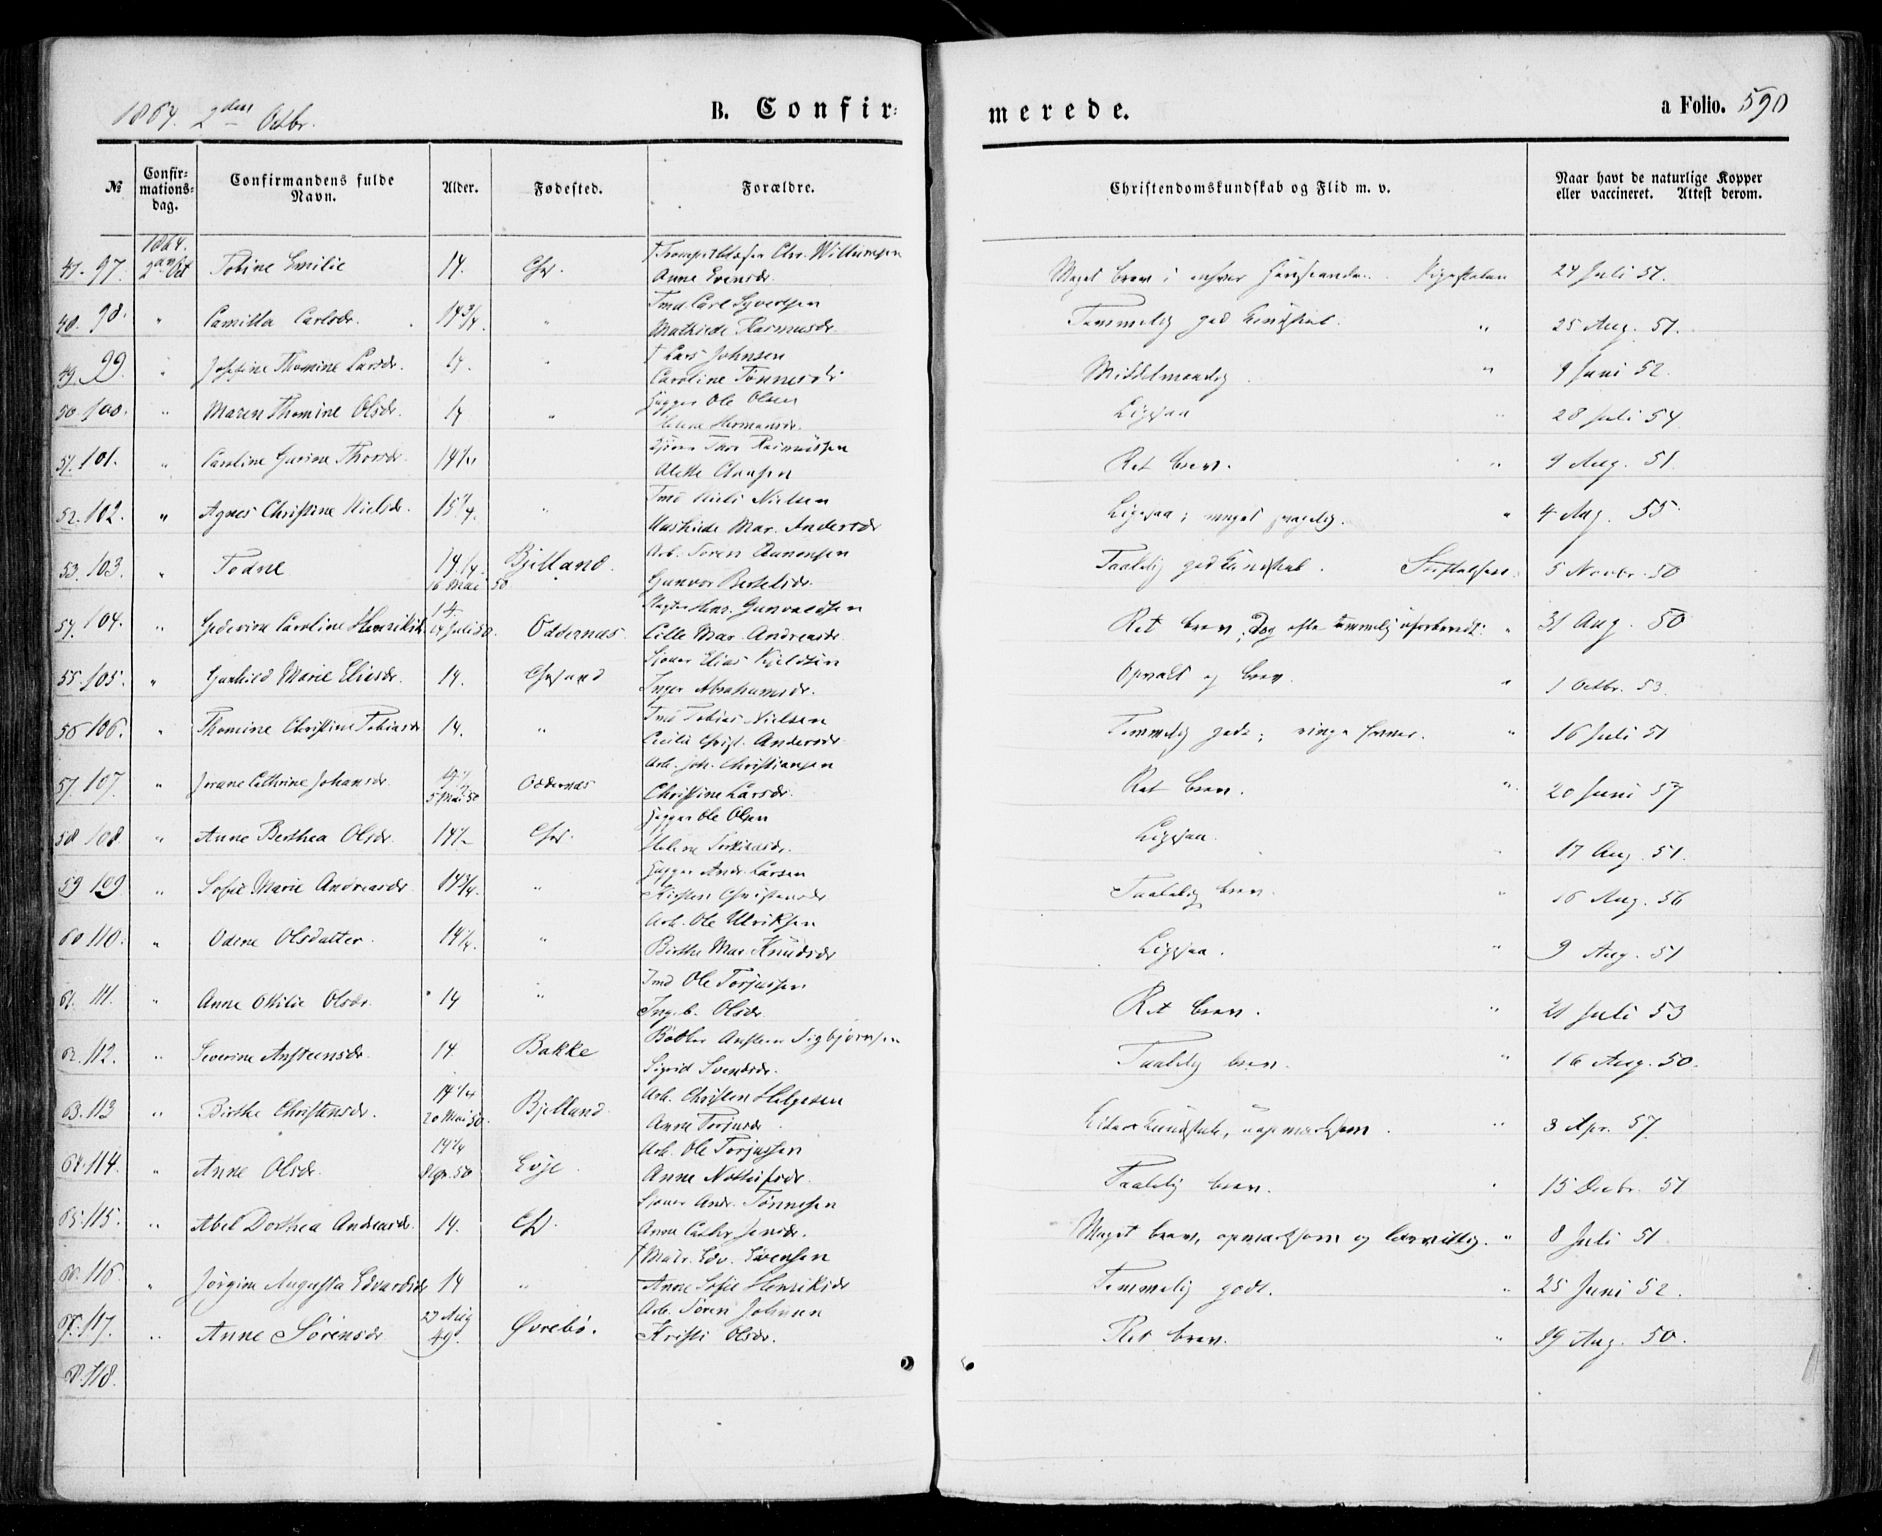 1864. 2den Octbr.
B. Confir:
merede.
a Folio. 590
№
Confir:
mations:
dag.
Confirmandens fulde
Navn.
Alder.
Fødested.
Forældre.
Christendomskundskab og Flid m. v.
Naar havt de naturlige Kopper
eller vaccineret. Attest derom.
1864.
97. 2den Oct Tobine Emilie 14. Chr. † Chr. Willumsen
Anne Evensdr.
Meget brav i enhver 24 Juli 51.
48. 98. " Camilla Carlsdr. 14 3/4. " Tmd Carl Syvertsen
Mathilde Rasmusdr.
Temmelig god Kundskab. " 25 Aug. 51.
49. 99. " Josefine Thomine Larsdr. 14. " † Lars Johnsen
Caroline Tønnesdr.
Middelmaadig " 9 Juni 52.
50. 100. " Maren Thomine Olsdr. 14 " Ole Olsen
Helene
Ligesaa " 28 Juli 54
51. 101. " Caroline Thorsdr. 14 Thor Rasmussen
Clausen
Ret brav. " 9 Aug. 51.
52. 102. " Agnes Christine Nielsdr. 15 1/4. " Tmd Niels Nielsen
Mathilde Mar. Andersdr
Ligesaa; meget " 4 Aug. 55
53. 103. " Todne 14. 1/4. Bjelland. Arb. Søren Aanensen
16 Mai 50
Gunvor Bertelsdr.
Taalelig god Kundskab. 5 Novbr. 50
54. 104. " Caroline Henriksdr. 14. 14 Juli 50. Oddernæs. Gunvaldsen
Lille Mar. Andreasdr.
Ret brav, Dog ofte temmelig uforberedt. " 31 Aug. 50
55. 105. " Gunhild Marie Eliasdr. 14. Chrsand Elias Kjeldsen
Inger Abrahamsdr.
og brav. " 1 Octbr. 53.
56 106. " Thomine Christine Tobiasdr 14. " Tmd Tobias Nielsen
Cecilie Christ. Andersdr.
Temmelig gode; ringe Evner. " 16 Juli 51
57. 107. " Cathrine Johansdr. 5 Mai 50 Oddernæs Arb. Joh. Christiansen
Christine Larsdr.
Ret brav. " 20 Juni 57
58 108 " Anne Berthea Olsdr. 14 Chr. Ole Olsen
Helene
Ligesaa. " 17 Aug. 51.
59 109 " Sofie Marie Andreasdr. 14 3/4. " Andr. Larsen
Kirsten Christensdr
Taalelig brav. " 16 Aug. 56
60 110. " Odene Olsdatter. 14 1/4. " Arb. Ole Ulriksen
Birthe Mar. Knudsdr
Ligesaa. " 9 Aug. 51
61. 111. " Anne Otilie Olsdr. 14 " Tmd Ole Torjussen
Ingeb. Olsdr.
Ret brav. " 21 Juli 53
62. 112. " Severine Anstensdr. 14. Bakke Bødker Ansten Sigbjørnsen
Sigrid Svendsdr.
Taalelig brav. " 16 Aug. 50.
63. 113 " Birthe Christensdr. 14 1/4 20 Mai 50. Bjelland. Arb. Christen Helgesen
Anne Torjusdr.
Kundskab, opmærksom. " 3 Apr. 57.
64. 114. " Anne Olsdr. 14 1/4 50 Evje. Arb. Ole Torjussen
Anne
Taalelig brav. " 15 Decbr. 51
65. 115. " Abel Dorthea Andreasdr. 14. Chr. Andr. Tønnesen
Anne Cathr. Jensdr.
Meget brav, opmærksom og lærvillig. " 8 Juli 51.
66. 116. " Jørgine Augusta Edvardsdr 14 " † Matr. Edv. Sørensen
Anne Sofie Henriksdr
Temmelig godt. " 25 Juni 52.
67. 117. " Anne Sørensdr 27 Aug 49. Øvrebø. Arb. Søren Johnsen
Kristi Olsdr.
Ret brav. " 19 Aug. 50.
68. 118.